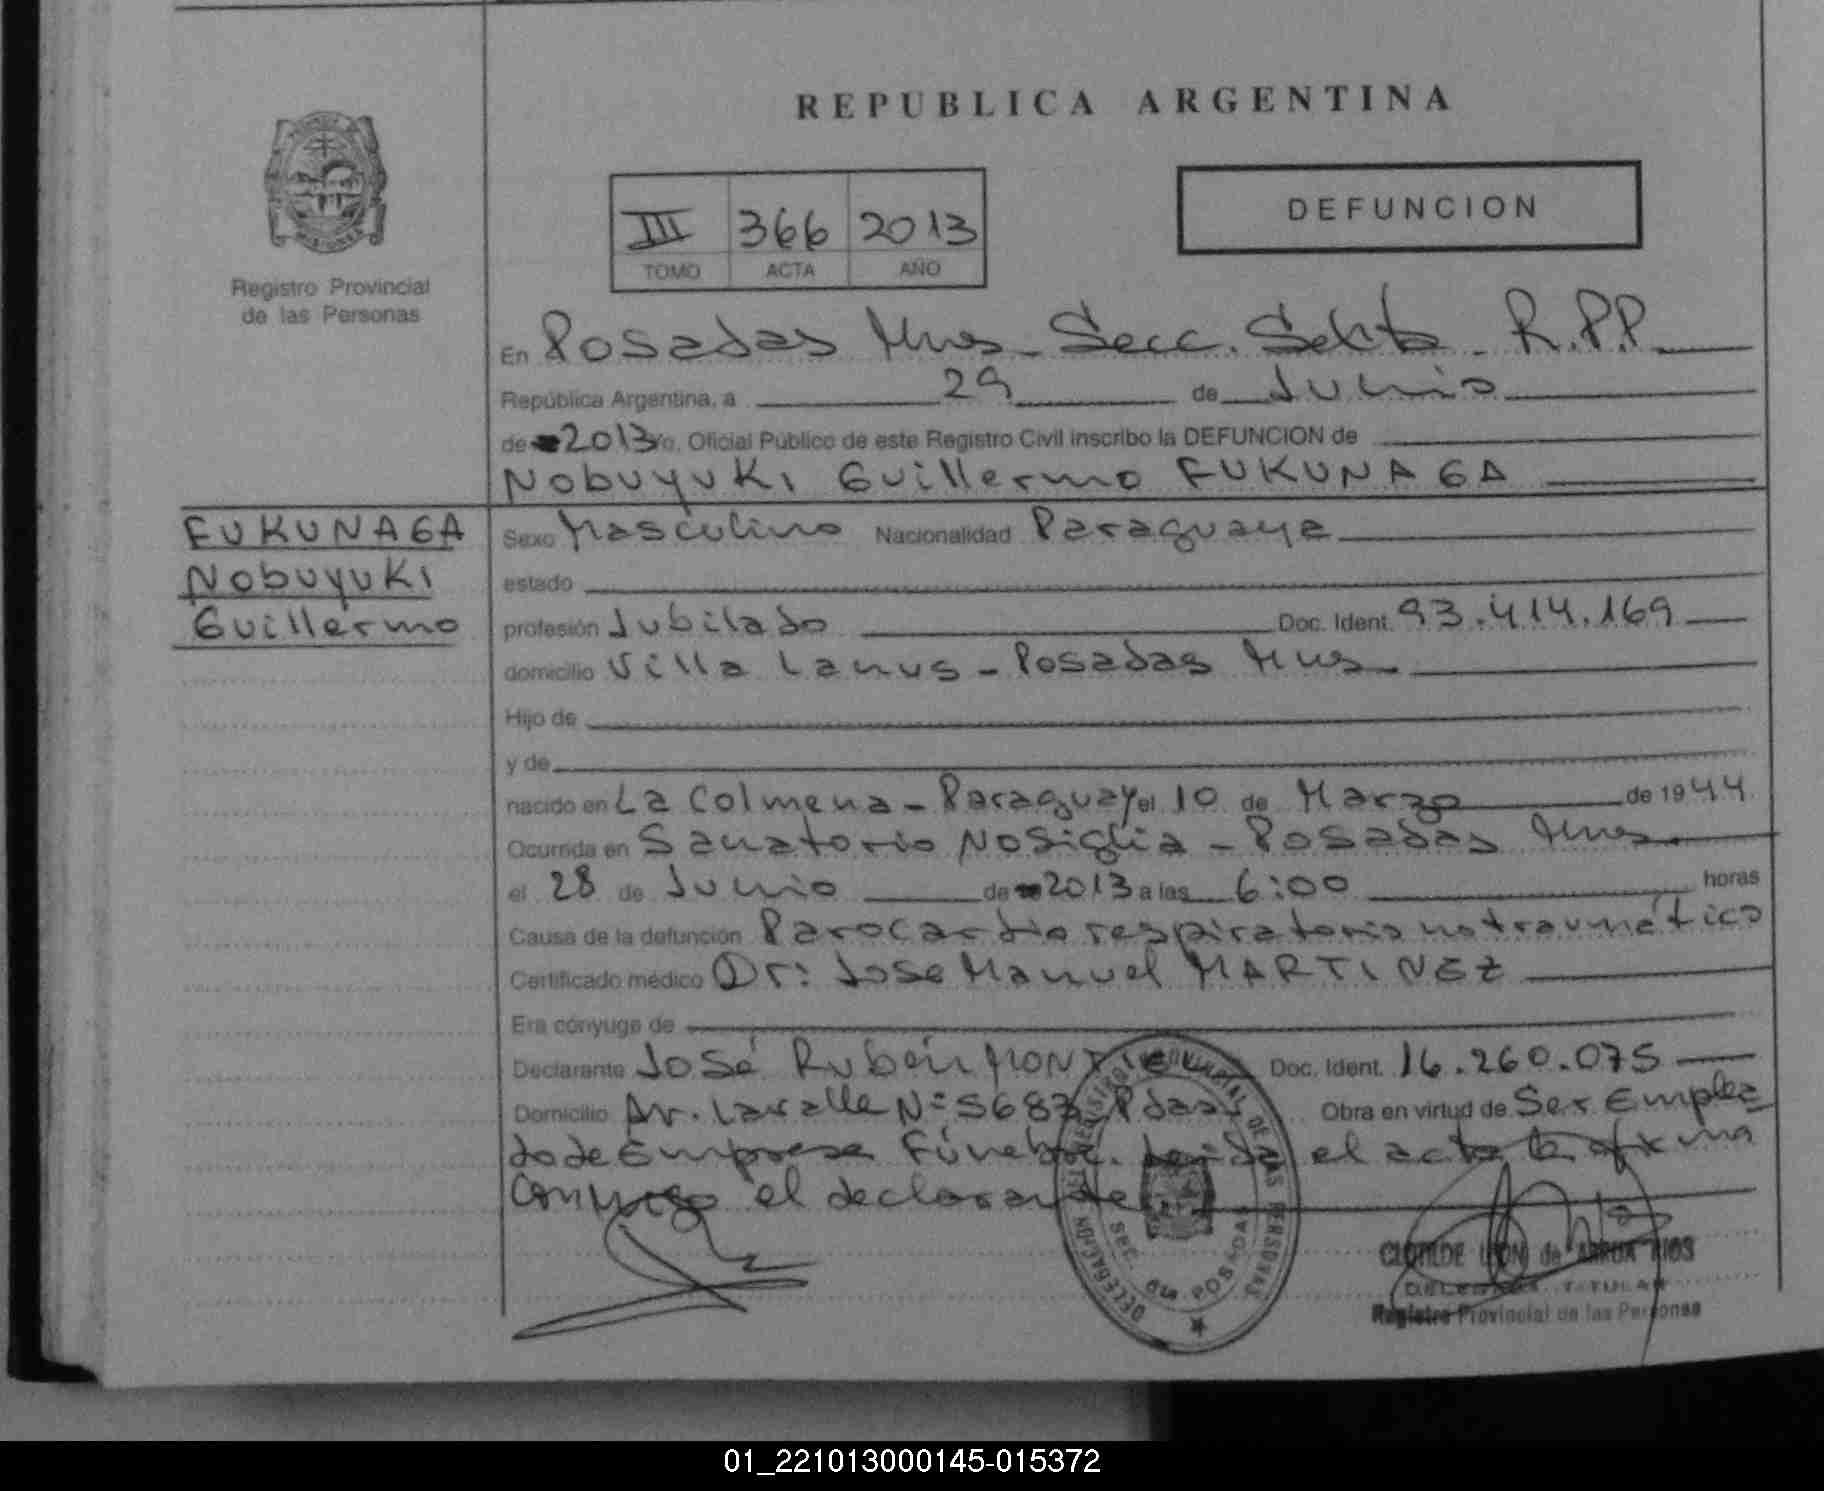 REPUBLICA ARGENTINA
MISIONES
Registro Provincial
de las Personas
III 366 2013
TOMO ACTA AÑO
DEFUNCION
En Posadas Mnes - Secc. Sexta - R.P.P.
República Argentina, a 29 de Junio
de 2013 Yo, Oficial Público de este Registro Civil inscribo la DEFUNCION de
Nobuyuki Guillermo FUKUNAGA
FUKUNAGA
Nobuyuki
Guillermo
Sexo Masculino Nacionalidad Paraguaya
estado
profesión Jubilado Doc. Ident. 93.414.169
domicilio Villa Lanus - Posadas Mnes
Hijo de
y de
nacido en La Colmena - Paraguay el 10 de Marzo de 1944
Ocurrida en Sanatorio Nosiglia - Posadas Mnes.
el 28 de Junio de 2013 a las 6:00 horas
Causa de la defunción Parocardiorespiratorio no traumático
Certificado médico Dr: Jose Manuel MARTINEZ
Era cónyuge de
Declarante José Rubén Doc. Ident. 16.260.075
Domicilio Av. Lavalle Nº 5687 Pdas Obra en virtud de Ser Emplea
do de Empresa Fúnebre. Leida el acta la firma
conmigo el declarante
DELEGACION DEL REGISTRO PROVINCIAL DE LAS PERSONAS
SEC. 6ta POSADAS
CLOTILDE LEON de ARRUA RIOS
DELEGADA TITULAR
Registro Provincial de las Personas
01_221013000145-015372